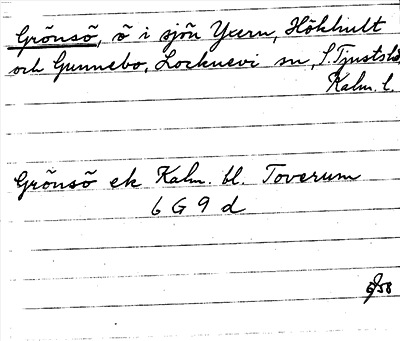 Grönsö, ö i sjön Yxern, Hökhult
och Gunnebo, Locknevi sn, S. Tjusts hd
Kalm. l.
Grönsö ek Kalm. bl. Toverum
6 G 9 d